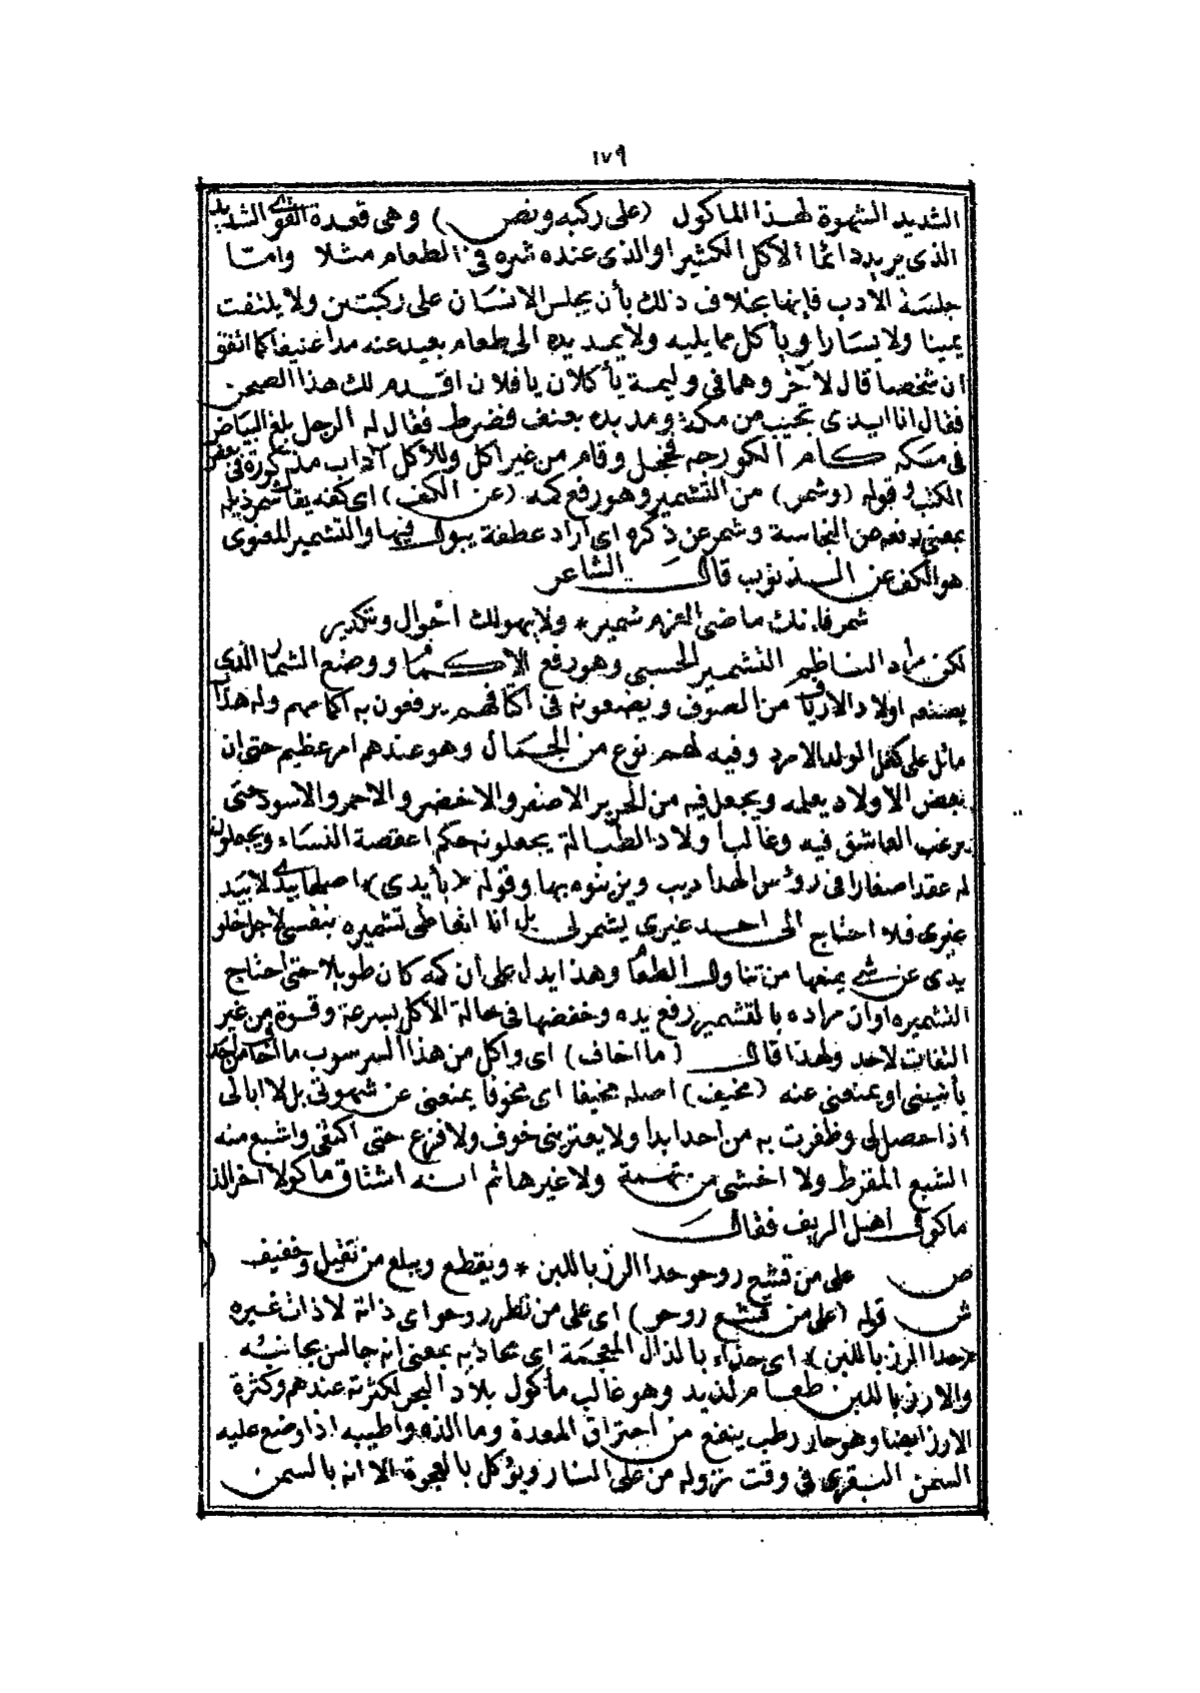 ١٧٩
الشديد الشهوة لهذا الماكول (على ركبه ونص) وهى قعدة القوى الشديد
الذى يريد دائما الاكل الكثير او الذى عنده شره فى الطعام مثلا واما
جلسة الادب فانها بخلاف ذلك بأن يجلس الانسان على ركبتين ولا يلتفت
يمينا ولا يسارا ويأكل مما يليه ولا يمد يده الى طعام بعيد عنه مدا عنيفا كما اتفق
ان شخصا قال لآخر وهما فى وليمة يأكلان يا فلان اقدم لك هذا الصحن
فقال انا ايدى تجيب من مكة ومد يده بعنف فضرط فقال له الرجل بلغ البياض
فى مكه كام الكورجه فخجل وقام من غير اكل وللاكل آداب مذكورة فى بعض
الكتب وقوله (وشمر) من التشمير وهو رفع كمه (عن الكف) اى كفه يقال شمر ذيله
بمعنى رفعه من النجاسة وشمر عن ذكره اى اراد عطفة يبول فيها والتشمير المعنوى
هو الكف عن الذنوب قال الشاعر
شمر فانك ماضى العزم شمير * ولا يهولك احوال وتكدير
لكن مراد الناظم التشمير الحسى وهو رفع الاكمام ووضع الشمار الذى
يصنعه اولاد الارياف من الصوف ويضعونه فى اكتافهم يرفعون به اكمامهم وله هذا
مائل على كفل الولد الامرد وفيه لهم نوع من الجمال وهو عندهم امر عظيم حتى ان
بعض الاولاد يعلمه ويجعل فيه من الحرير الاصفر والاخضر والاحمر والاسود حتى
يرغب العاشق فيه وغالب اولاد الطبالة يجعلونه حكم اعقصة النساء ويجعلون
له عقدا صغارا فى رؤس الهداديب ويزينوه بها وقوله (بأيدى) اصلها بيدى لا بيد
غيرى فلا احتاج الى احد غيرى يشمر لى بل انا اتعاطى تشميره بنفسى لاجل خلو
يدى عن شئ يمنعها من تناول الطعام وهذا يدل على أن كمه كان طويلا حتى احتاج
لتشميره او ان مراده بالتشمير رفع يده وخفضها فى حالة الاكل بسرعة وقوة من غير
التفات لاحد ولهذا قال (ما اخاف) اى واكل من هذا السرسوب ما اخاف من احد
يأتينى او يمنعنى عنه (مخيف) اصله مخيفا اى مخوفا يمنعنى عن شهوتى بل لا ابالى
اذا حصل لى وظفرت به من احد ابدا ولا يعترينى خوف ولا فزع حتى اكتفى واشبع منه
الشبع المفرط ولا اخشى من تهمة ولا غيرها ثم انه اشتاق ماكولا اخر الذ
ماكول اهل الريف فقال
ص على من قشع روحو حدا الرز باللبن * ويقطع ويبلع من تقيل وخفيف
ش قوله (على من قشع روحو) اى على من نظر روحو اى ذاته لا ذات غيره
(حدا الرز باللبن) اى حذاء بالذال المعجمة اى محاذيه بمعنى انه جالس بجانبه
والارز باللبن طعام لذيد وهو غالب مأكول بلاد البحر لكثرته عندهم وكثرة
الارز ايضا وهو حار رطب ينفع من احتراق المعدة وما الذه واطيبه اذا وضع عليه
السمن البقرى فى وقت نزوله من على النار ويؤكل بالعجوة الا انه بالسمن